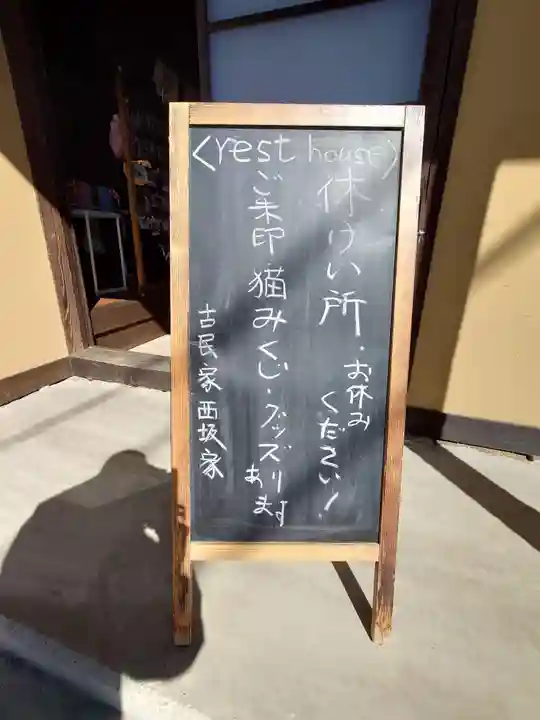 <rest house>
休けい所・お休み
ください!
ご朱印 猫みくじ・グッズり
あります
古民家西坂家